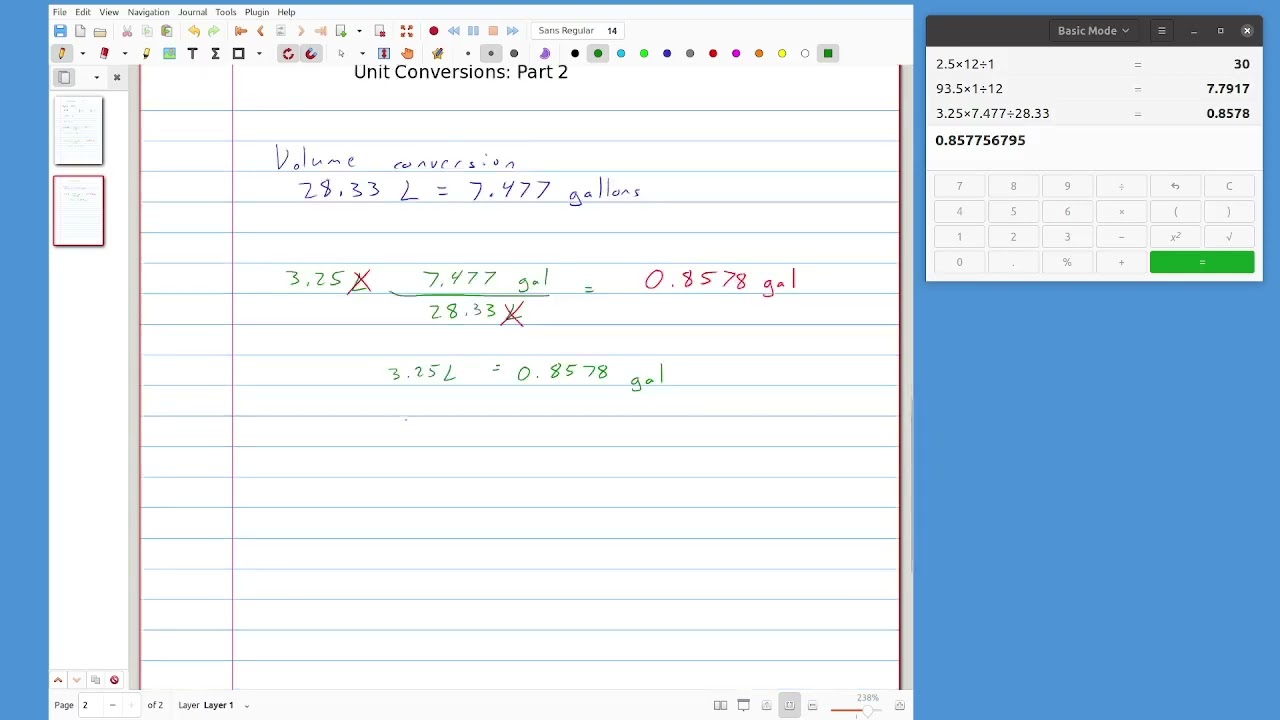 File Edit View Navigation Journal Tools Plugin Help
Sans Regular 14
Unit Conversions: Part 2
Volume conversion
28.33 L = 7.477 gallons
3.25 L 7.477 gal = 0.8578 gal
28.33 L
3.25L = 0.8578 gal
Page 2 of 2 Layer Layer 1
238%
Basic Mode
2.5×12÷1 = 30
93.5×1÷12 = 7.7917
3.25×7.477÷28.33 = 0.8578
0.857756795
7 8 9 ÷ C
4 5 6 × ( )
1 2 3 − x² √
0 . % + =